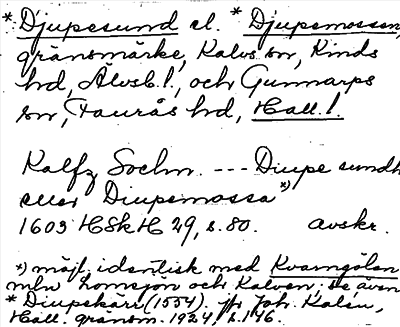 * Djupesund el. * Djupemossen,
gränsmärke, Kalvs sn, Kinds
hd, Älvsb. l., och Gunnarps
sn, Faurås hd, Hall. l.
Kalfz Sochn. --- Diupe sundh
eller Diupemossa *)
1603 HSkH 29, s. 80. avskr.
*) möjl. identisk med Kvarngölen
mln Lomsjön och Kalven. Se även
* Diupekärr (1554). jfr Joh. Kalén,
Hall. gränsm. 1924, s. 146.